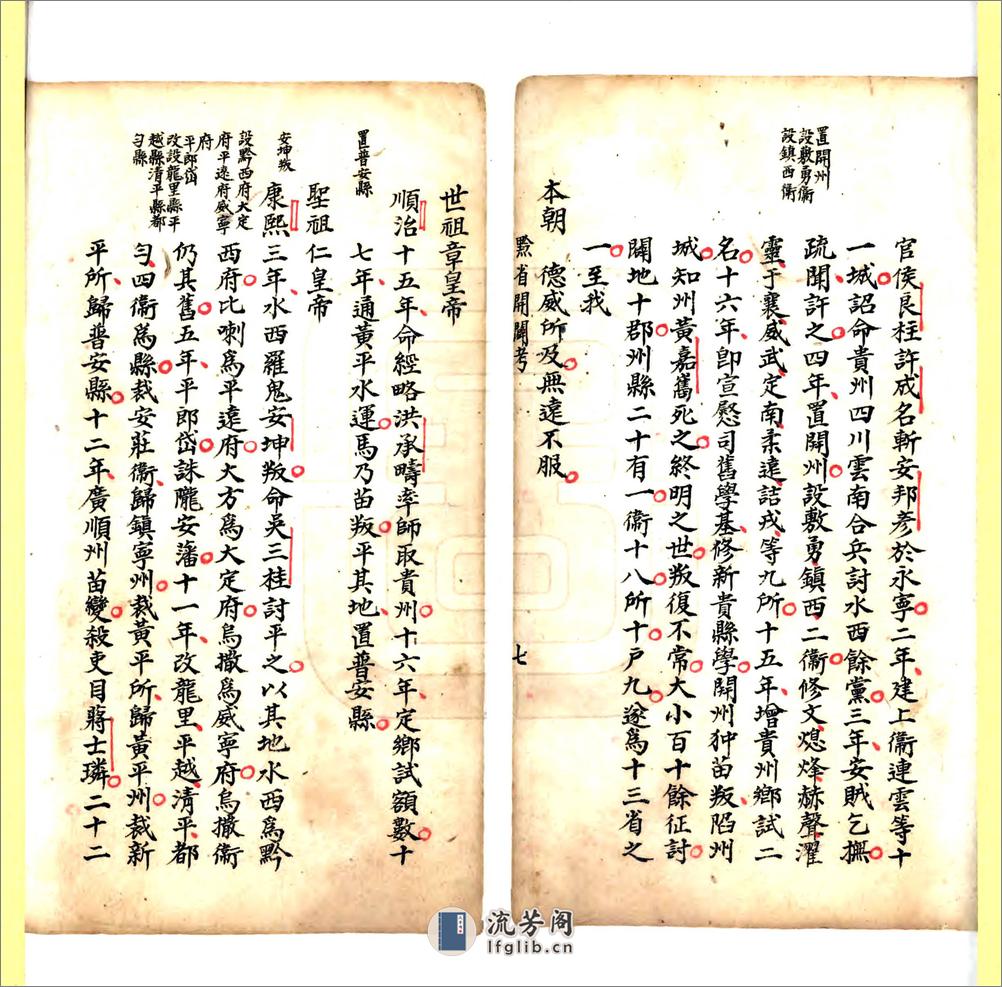 置開州
設敷勇衛
設鎮西衛
官侯良柱許成名斬安邦彥於永寧二年建上衛連雲等十
一城詔命貴州四川雲南合兵討水西餘黨三年安賊乞撫
疏聞許之四年置開州設敷勇鎮西二衛修文熄烽赫聲濯
靈于襄威武定南柔遠詰戎等九所十五年增貴州鄉試二
名十六年即宣慰司舊學基修新貴縣學開州狆苗叛陷州
城知州黃嘉雋死之終明之世叛復不常大小百十餘征討
闢地十郡州縣二十有一衛十八所十戶九遂為十三省之
一至我
本朝 德威所及無遠不服
黔省開闢考
七
世祖章皇帝
順治十五年命經略洪承疇率師取貴州十六年定鄉試額數十
置普安縣
七年通黃平水運馬乃苗叛平其地置普安縣
聖祖仁皇帝
安坤叛
康熙三年水西羅鬼安坤叛命吳三桂討平之以其地水西為黔
設黔西府大定
府平遠府威寧
府
西府比喇為平遠府大方為大定府烏撒為威寧府烏撒衛
平郎岱
改設龍里縣平
越縣清平縣都
勻縣
仍其舊五年平郎岱誅隴安潘十一年改龍里平越清平都
勻四衛為縣裁安莊衛歸鎮寧州裁黃平所歸黃平州裁新
平所歸普安縣十二年廣順州苗變殺吏目蔣士璘二十二
流芳阁
lfglib.cn